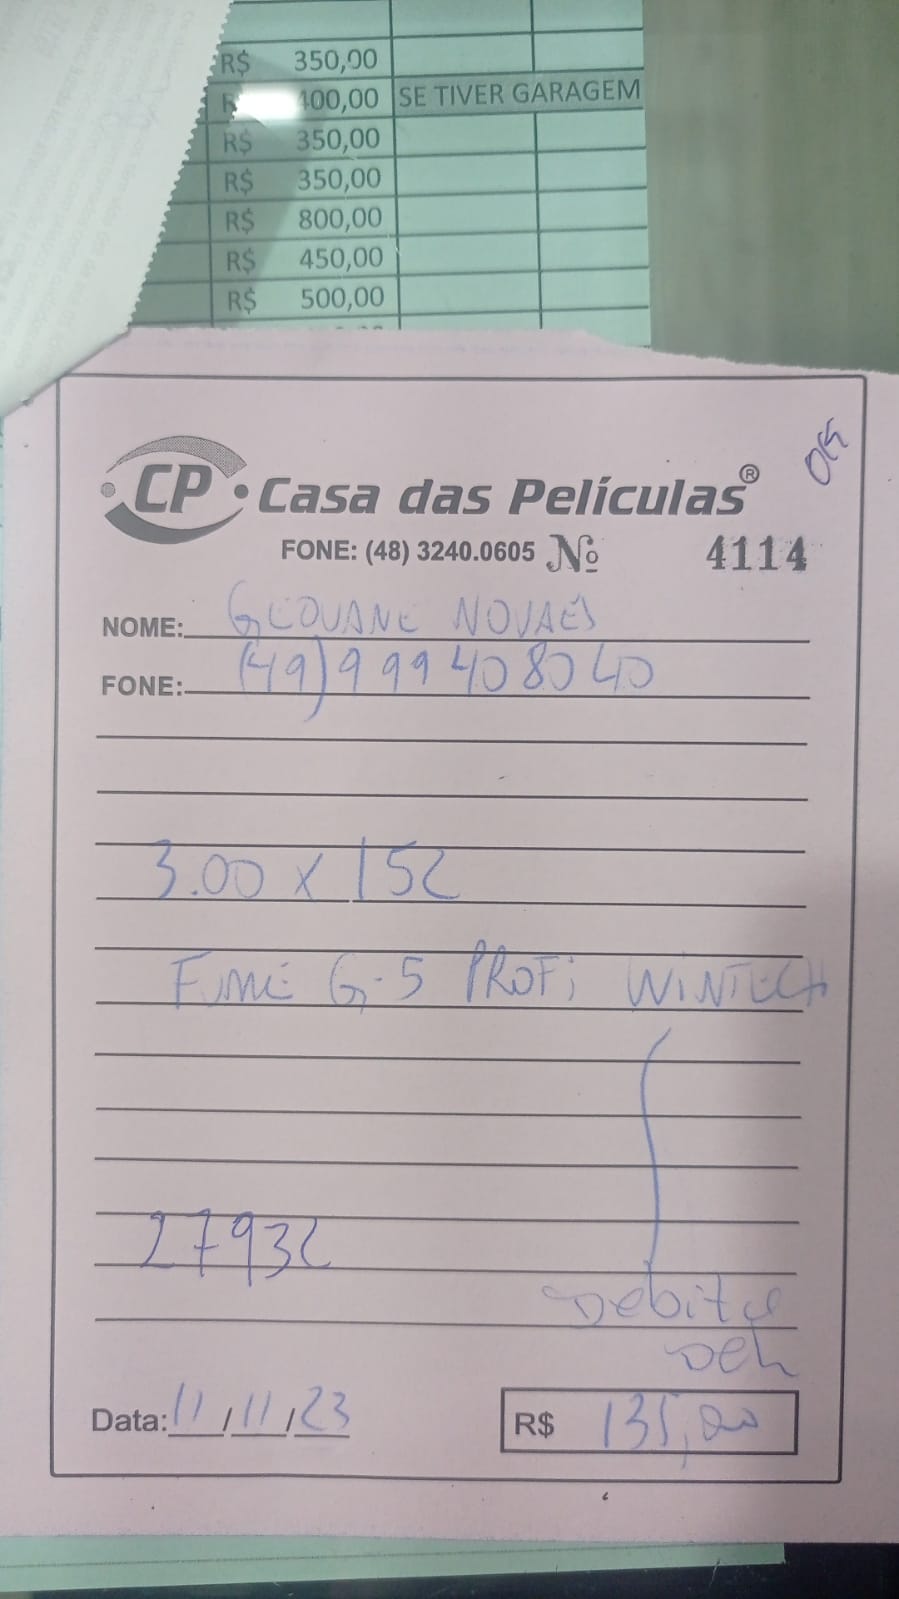 R$ 350,00
400,00 SE TIVER GARAGEM
R$ 350,00
R$ 350,00
R$ 800,00
R$ 450,00
R$ 500,00
CP Casa das Películas®
FONE: (48) 3240.0605 Nº 4114
NOME: GEOVANE NOVAES
FONE: (49) 999408040
3.00 x 152
FUMÊ G-5 PROFi WINTECH
27932
Debito
Data: 11/11/23 R$ 135,00